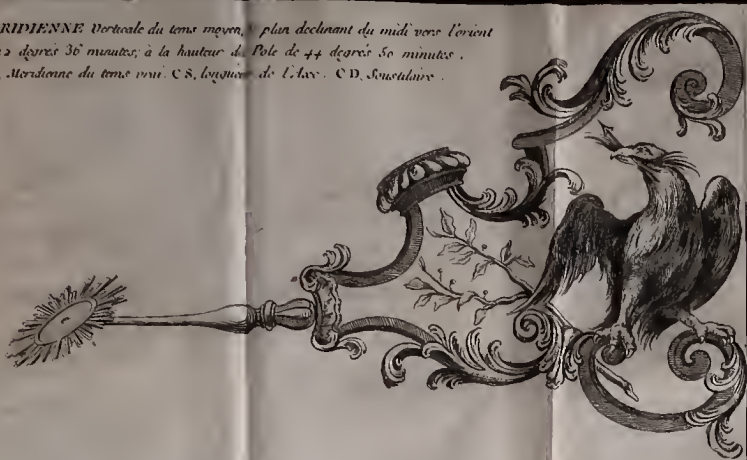 RIDIENNE Verticale du tems moyen, plan declinant du midi vers l'orient
2 degrés 36 minutes, à la hauteur du Pole de 44 degrés 50 minutes.
Meridienne du tems vrai. CS, longueur de l'Axe. CD, Soustilaire.